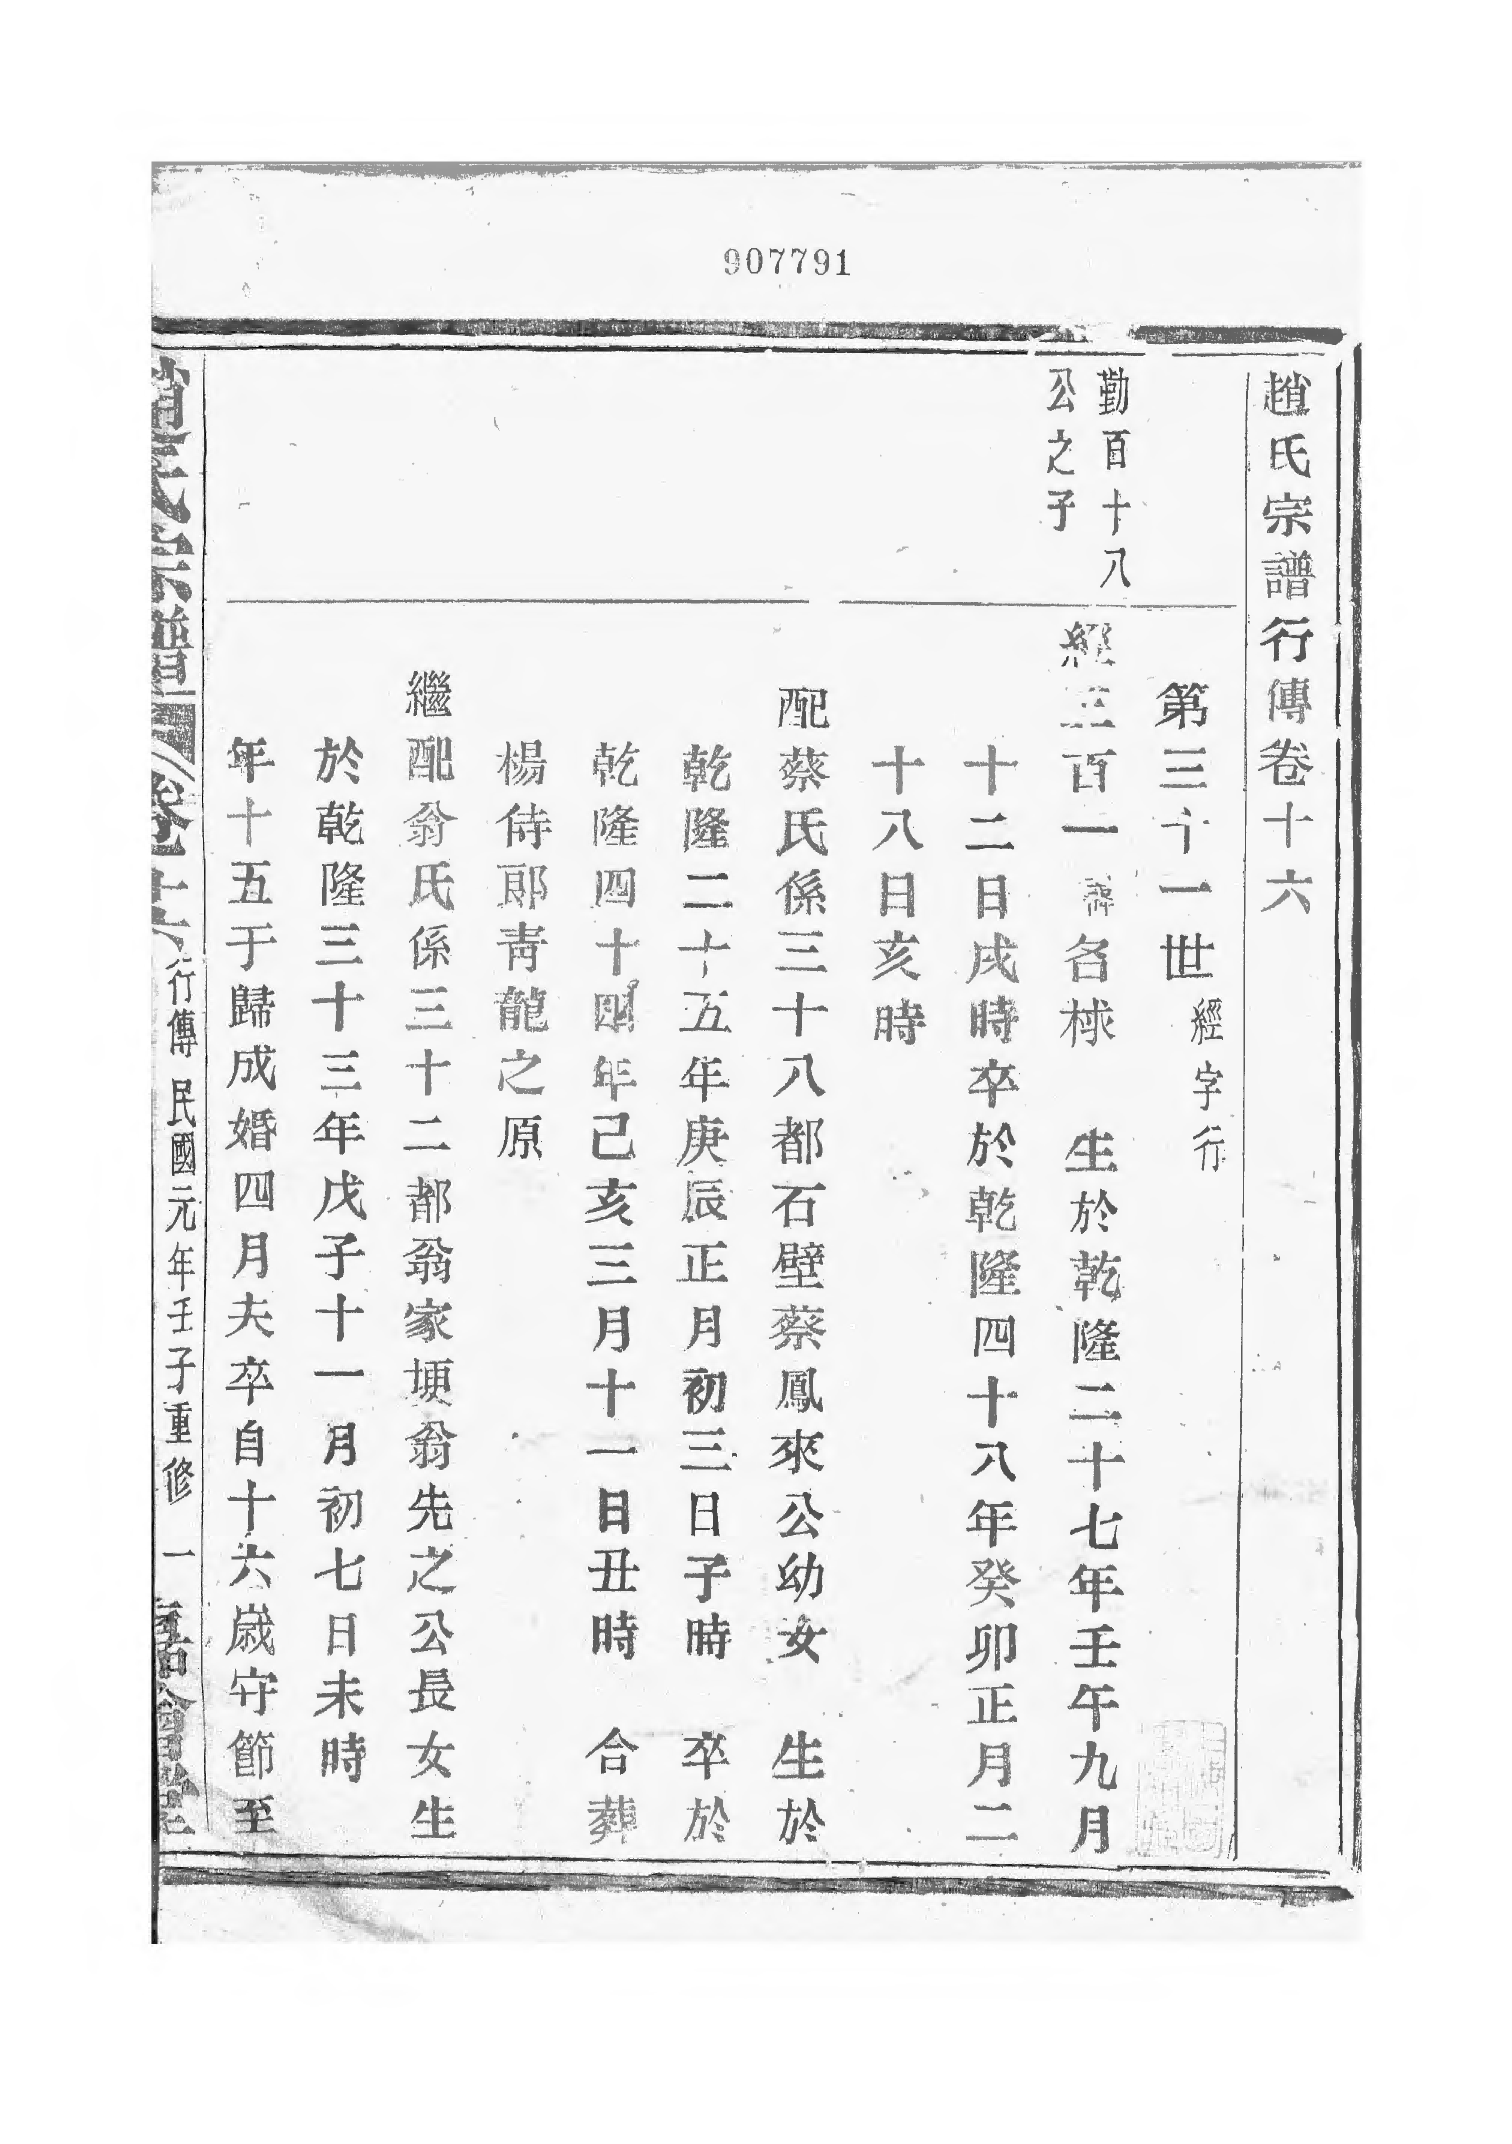 907791
趙氏宗譜行傳卷十六
第三十一世經字行
勤百十八
公之子
經三百一諱名梂 生於乾隆二十七年壬午九月
十二日戌時卒於乾隆四十八年癸卯正月二
十八日亥時
配蔡氏係三十八都石壁蔡鳳來公幼女 生於
乾隆二十五年庚辰正月初三日子時 卒於
乾隆四十四年己亥三月十一日丑時 合葬
楊侍郎青龍之原
繼配翁氏係三十二都翁家埂翁先之公長女生
於乾隆三十三年戊子十一月初七日未時
年十五于歸成婚四月夫卒自十六歲守節至
趙氏宗譜 卷十六 行傳 民國元年壬子重修 一 堂